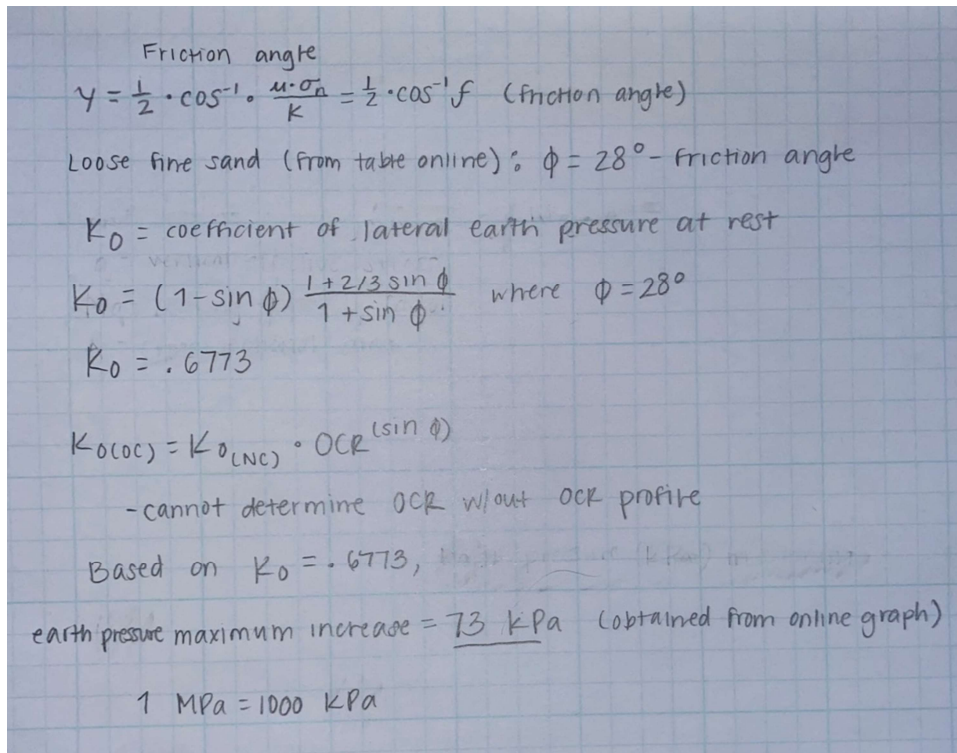 Friction angle
γ = 1/2 · cos⁻¹ · μ·σn/K = 1/2 · cos⁻¹ f (friction angle)
Loose fine sand (from table online): ϕ = 28° - friction angle
K0 = coefficient of lateral earth pressure at rest
vertical
K0 = (1-sin ϕ) 1+2/3 sin ϕ / 1+sin ϕ where ϕ = 28°
K0 = .6773
K0(OC) = K0(NC) · OCR^(sin ϕ)
- cannot determine OCR w/out OCR profile
Based on K0 = .6773,
earth pressure maximum increase = 73 kPa (obtained from online graph)
1 MPa = 1000 KPa